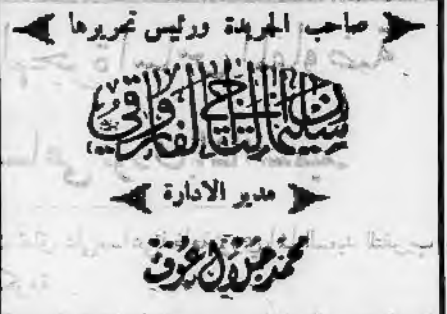 صاحب الجريدة ورئيس تحريرها
سليمان التاجي الفاروقي
مدير الادارة
محمد